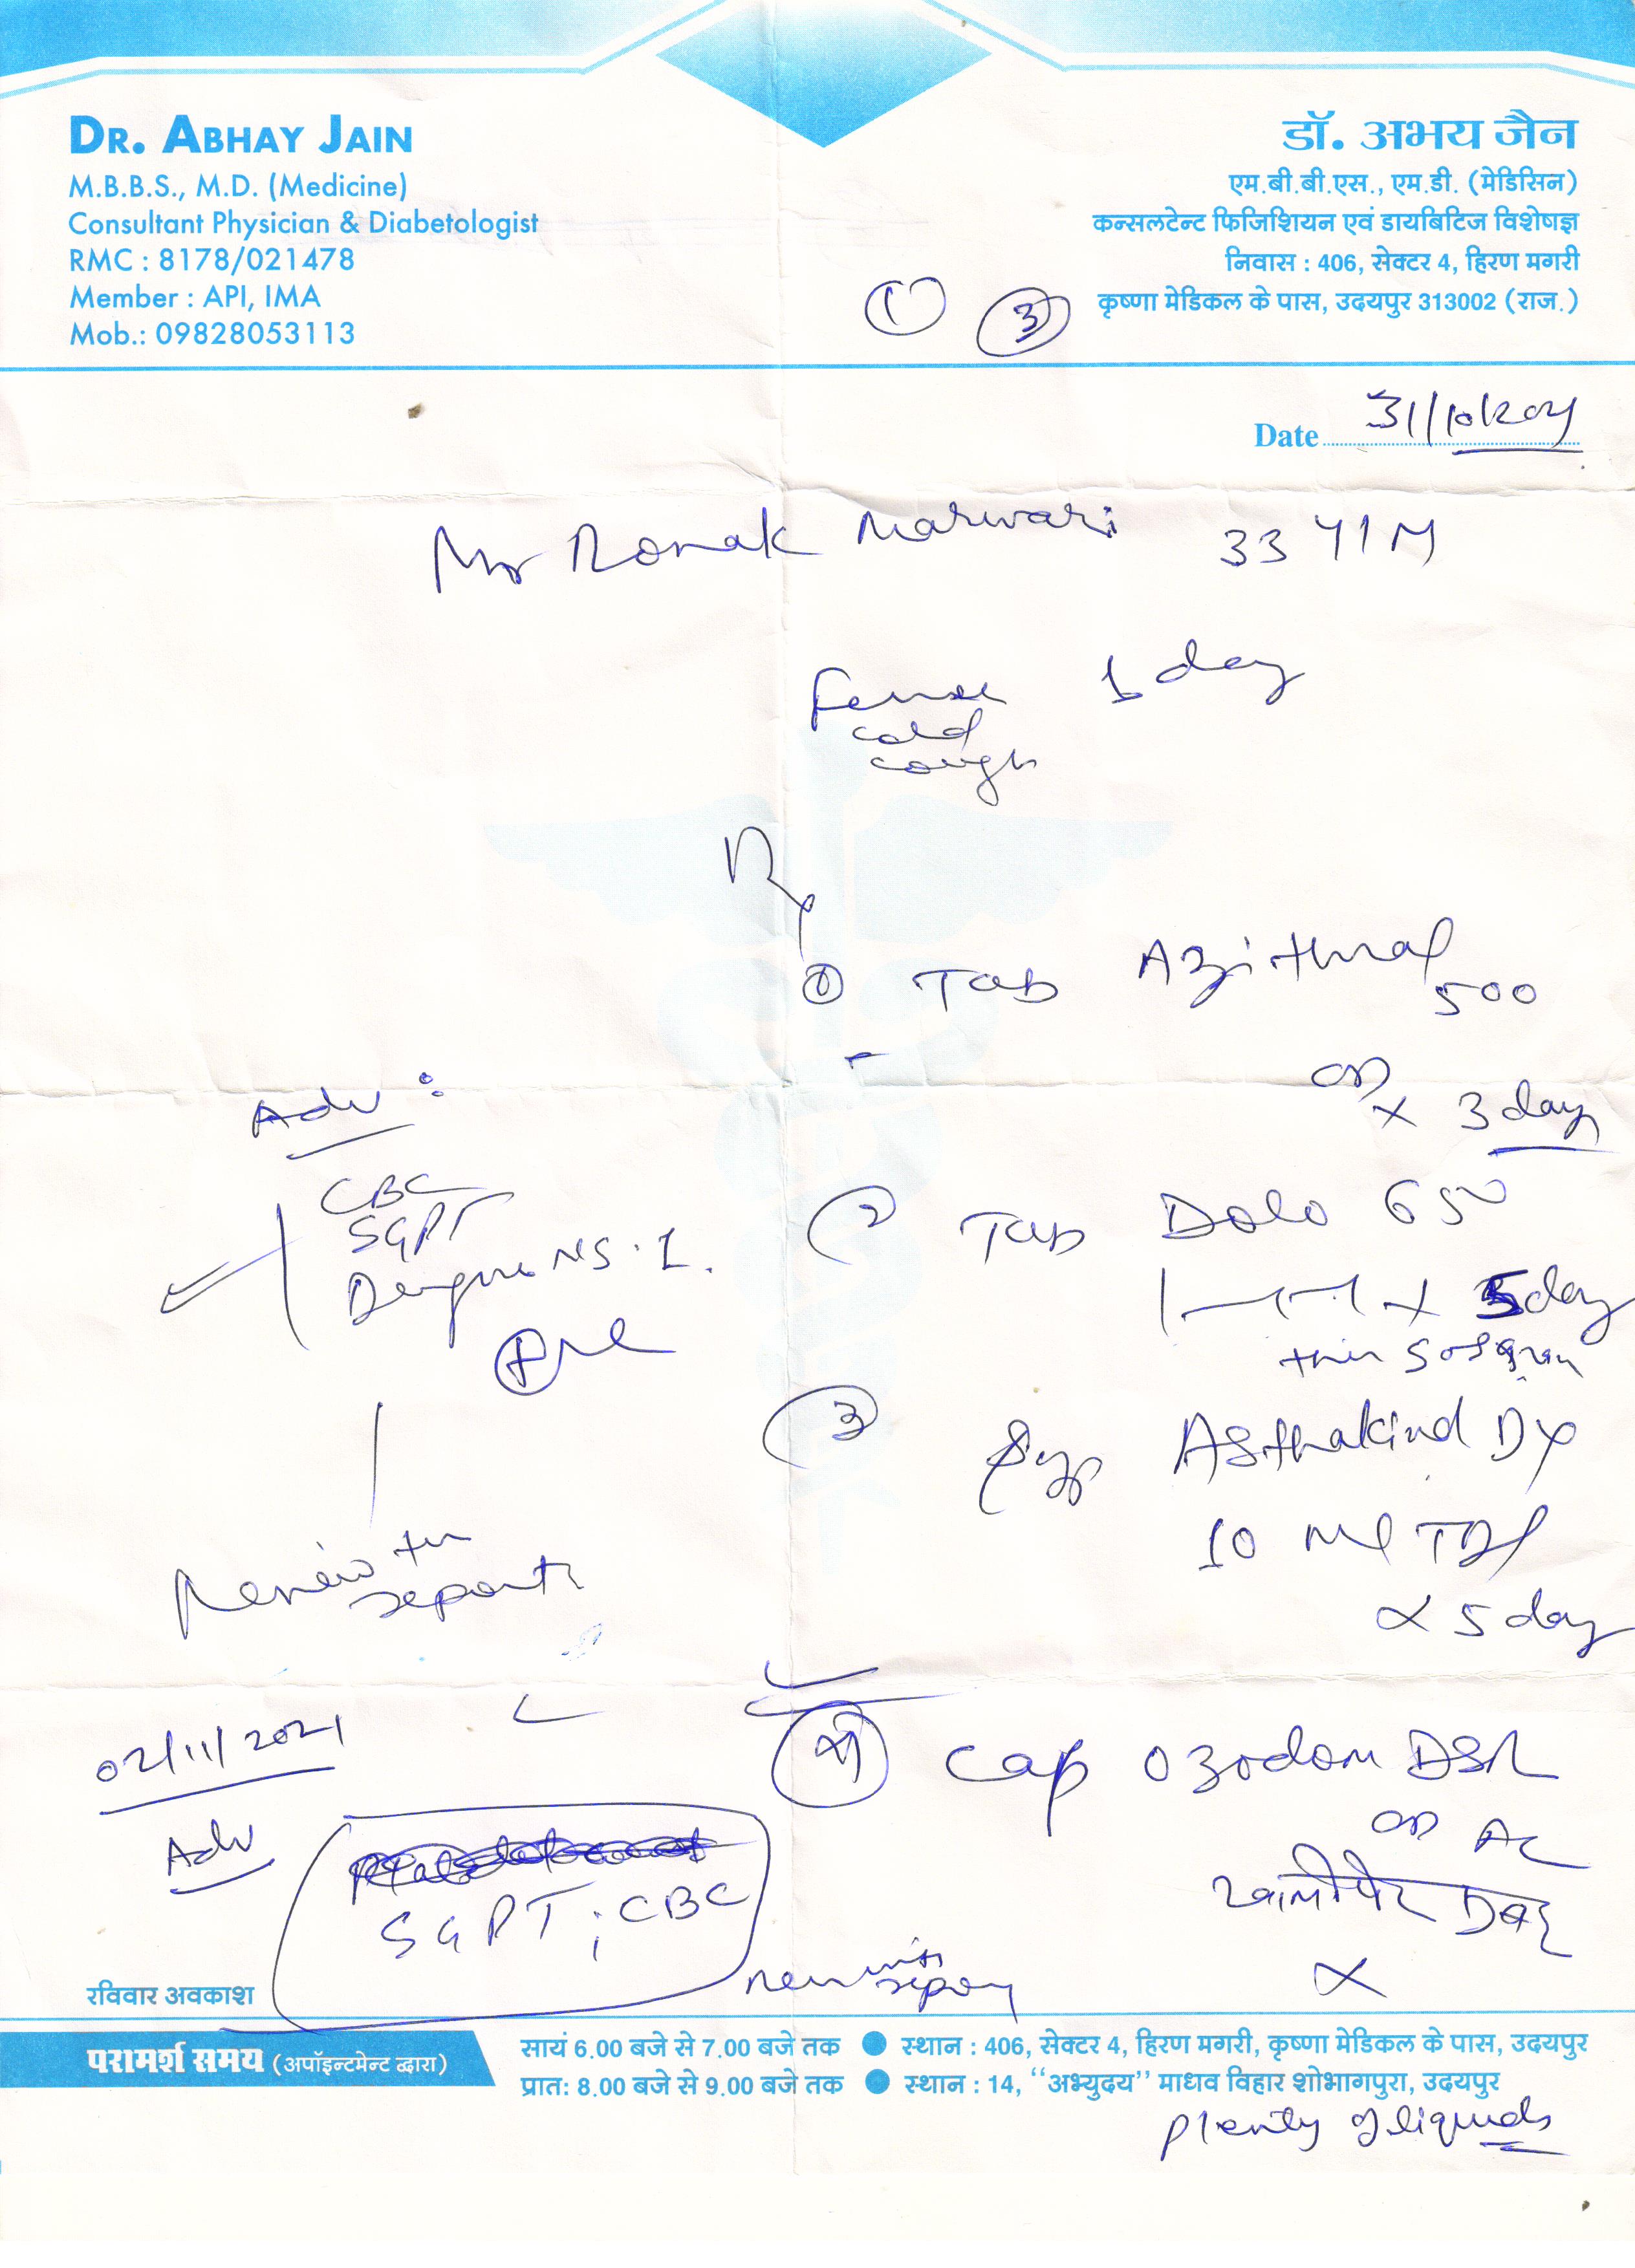 DR. ABHAY JAIN
M.B.B.S., M.D. (Medicine)
Consultant Physician & Diabetologist
RMC : 8178/021478
Member : API, IMA
Mob.: 09828053113
डॉ. अभय जैन
एम.बी.बी.एस., एम.डी. (मेडिसिन)
कन्सलटेन्ट फिजिशियन एवं डायबिटिज विशेषज्ञ
निवास : 406, सेक्टर 4, हिरण मगरी
कृष्णा मेडिकल के पास, उदयपुर 313002 (राज.)
1 3
Date 31/10/2021
Mr Ronak Marwari 33 Y/M
Fever 1 day
cold
cough
Rx
① Tab Azithral
500
OD
x 3 day
Adv :
CBC
SGPT
Dengue NS.1.
② Tab Dolo 650
x 5 day
then SOS
③ Syp Asthakind DX
10 ml TDS
x 5 day
Review
reports
④ Cap Ozodom DSR
OD AC
खाली पेट
x
02/11/2021
Adv
SGPT ; CBC
रविवार अवकाश
परामर्श समय (अपॉइन्टमेन्ट द्वारा)
सायं 6.00 बजे से 7.00 बजे तक ● स्थान : 406, सेक्टर 4, हिरण मगरी, कृष्णा मेडिकल के पास, उदयपुर
प्रात: 8.00 बजे से 9.00 बजे तक ● स्थान : 14, ‘‘अभ्युदय’’ माधव विहार शोभागपुरा, उदयपुर
Plenty of liquids